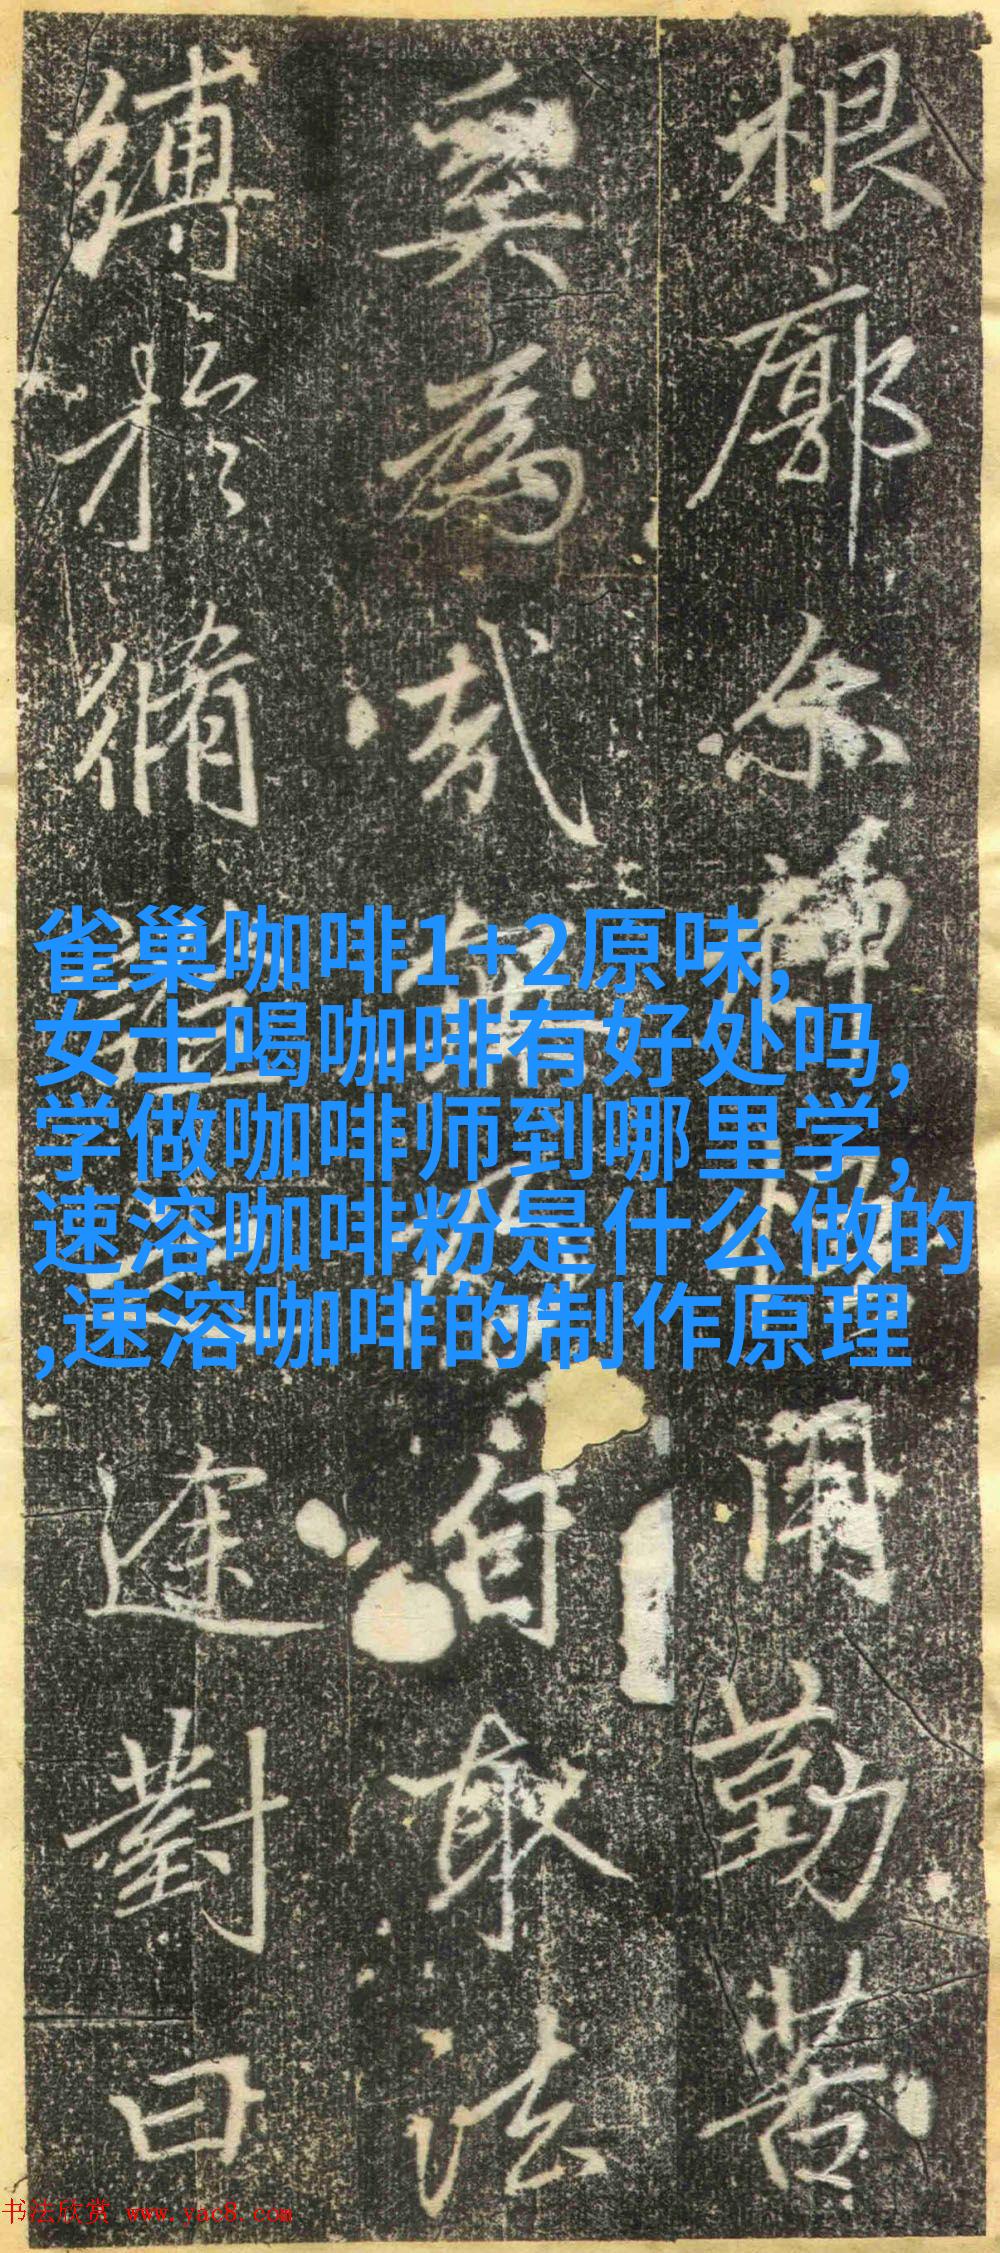 根廓尔神用勤苦
奚为哉自取法
缚于脩途对曰
雀巢咖啡1+2原味,
女士喝咖啡有好处吗,
学做咖啡师到哪里学,
速溶咖啡粉是什么做的
,速溶咖啡的制作原理
书法欣赏 www.yac8.com